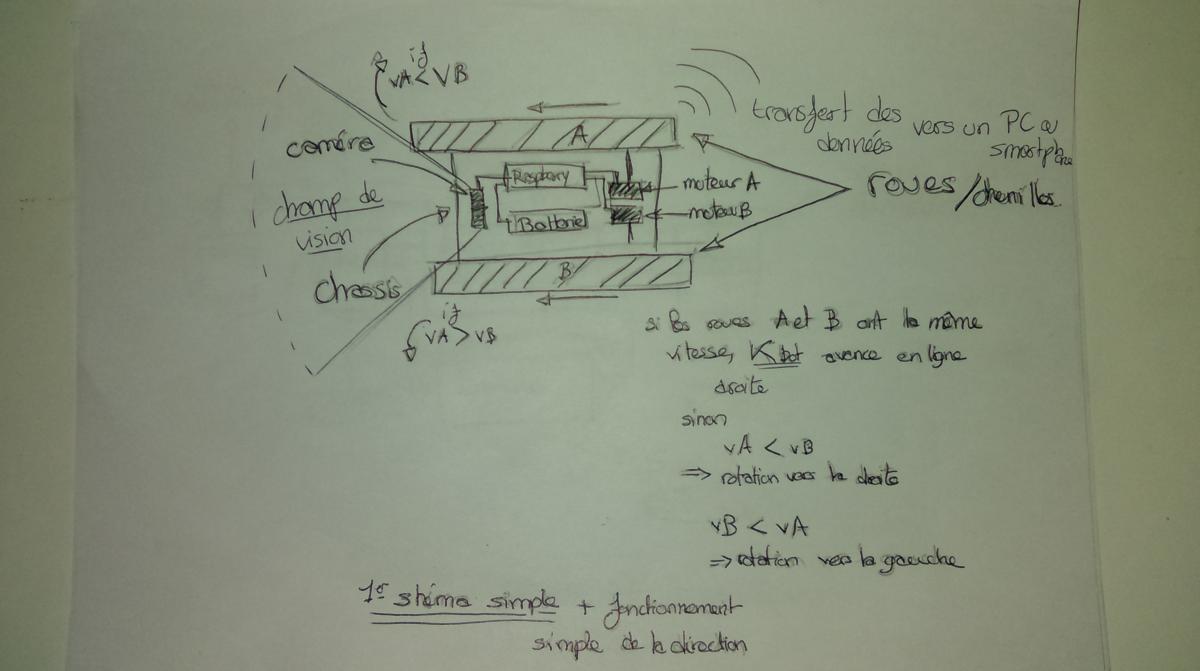 if
vA < VB
A
transfert des
données
vers un PC ou
smartphone
caméra
Raspbery
moteur A
roues/chenilles.
champ de
vision
Batterie
moteur B
chassis
B
if
vA > vB
si les roues A et B ont la même
vitesse, Kbot avance en ligne
droite
sinon
vA < vB
=> rotation vers la droite
vB < vA
=> rotation vers la gauche
1er shéma simple + fonctionnement
simple de la direction